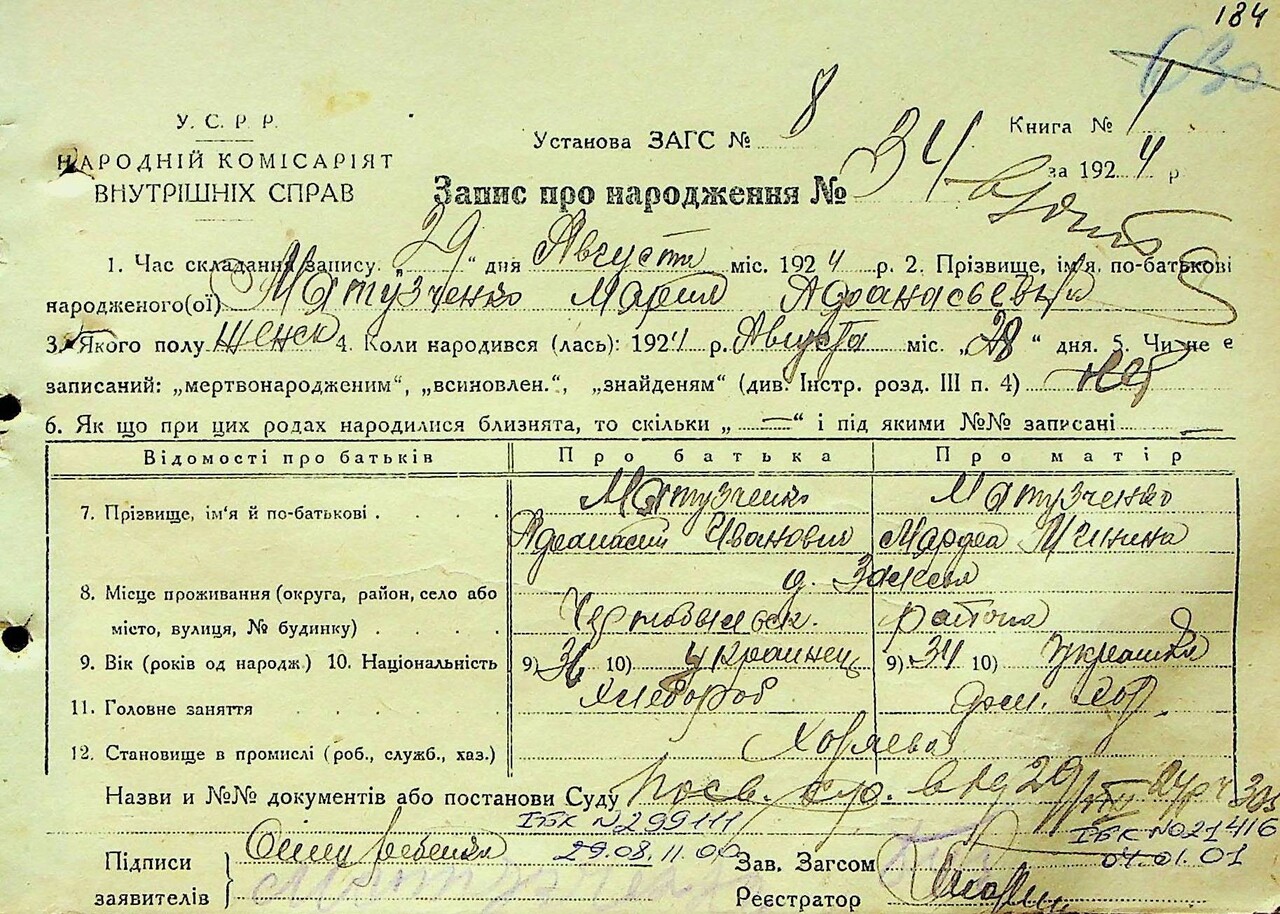 184
У. С. Р. Р.
НАРОДНІЙ КОМІСАРІЯТ
ВНУТРІШНІХ СПРАВ
Установа ЗАГС № 8
Книга № 1
за 1924 р
Запис про народження № 34
1. Час складання запису „29“ дня Августа міс. 1924 р. 2. Прізвище, ім'я, по-батькові
народженого(ої) Матузченко Мария Афанасьевна
3. Якого полу женск 4. Коли народився (лась): 1924 р. Августа міс. „28“ дня. 5. Чи не є
записаний: „мертвонародженим“, „всиновлен.“, „знайденям“ (див. Інстр. розд. III п. 4) нет
6. Як що при цих родах народилися близнята, то скільки „ — “ і під якими №№ записані —
Відомості про батьків Про батька Про матір
7. Прізвище, ім'я й по-батькові Матузченко Матузченко
Афанасий Иванович Марфа
8. Місце проживання (округа, район, село або
місто, вулиця, № будинку) Чернобыльск. района
9. Вік (років од народж.) 10. Національність 9) 36 10) украинец 9) 34 10) украинка
11. Головне заняття Хлебороб дом. хоз.
12. Становище в промислі (роб., служб., хаз.) Хозяева
Назви и №№ документів або постанови Суду
ІБК №299111 ІБК №21416
29.08.11.00 04.01.01
Підписи
заявителів
Зав. Загсом
Реєстратор